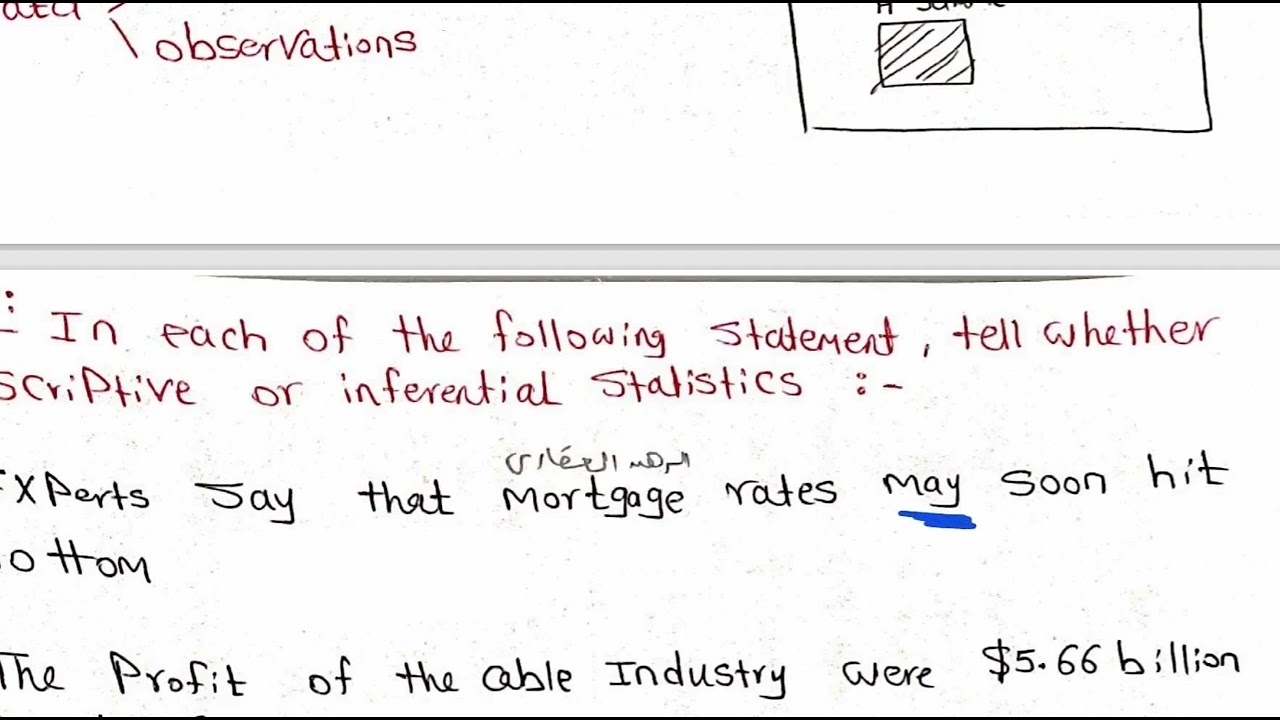 observations
: In each of the following statement, tell whether
scriptive or inferential statistics :-
الرهن العقاري
Experts say that mortgage rates may soon hit
ottom
The Profit of the cable Industry were $5.66 billion